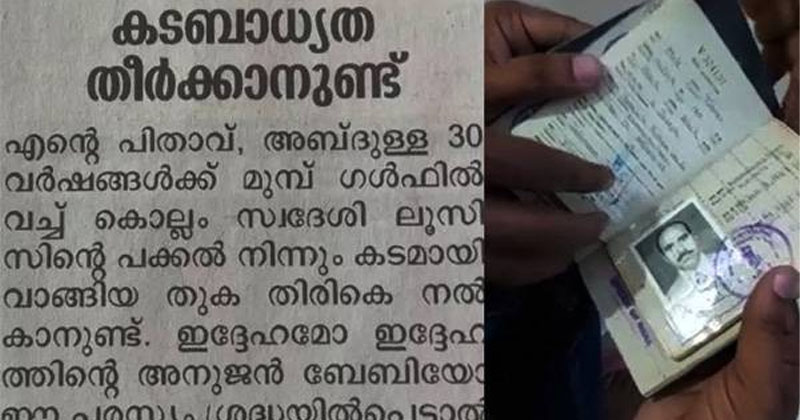 കടബാധ്യത
തീർക്കാനുണ്ട്
എന്റെ പിതാവ്, അബ്ദുള്ള 30
വർഷങ്ങൾക്ക് മുമ്പ് ഗൾഫിൽ
വച്ച് കൊല്ലം സ്വദേശി ലൂസി
സിന്റെ പക്കൽ നിന്നും കടമായി
വാങ്ങിയ തുക തിരികെ നൽ
കാനുണ്ട്. ഇദ്ദേഹമോ ഇദ്ദേഹ
ത്തിന്റെ അനുജൻ ബേബിയോ
ഈ പരസ്യം ശ്രദ്ധയിൽപെട്ടാൽ